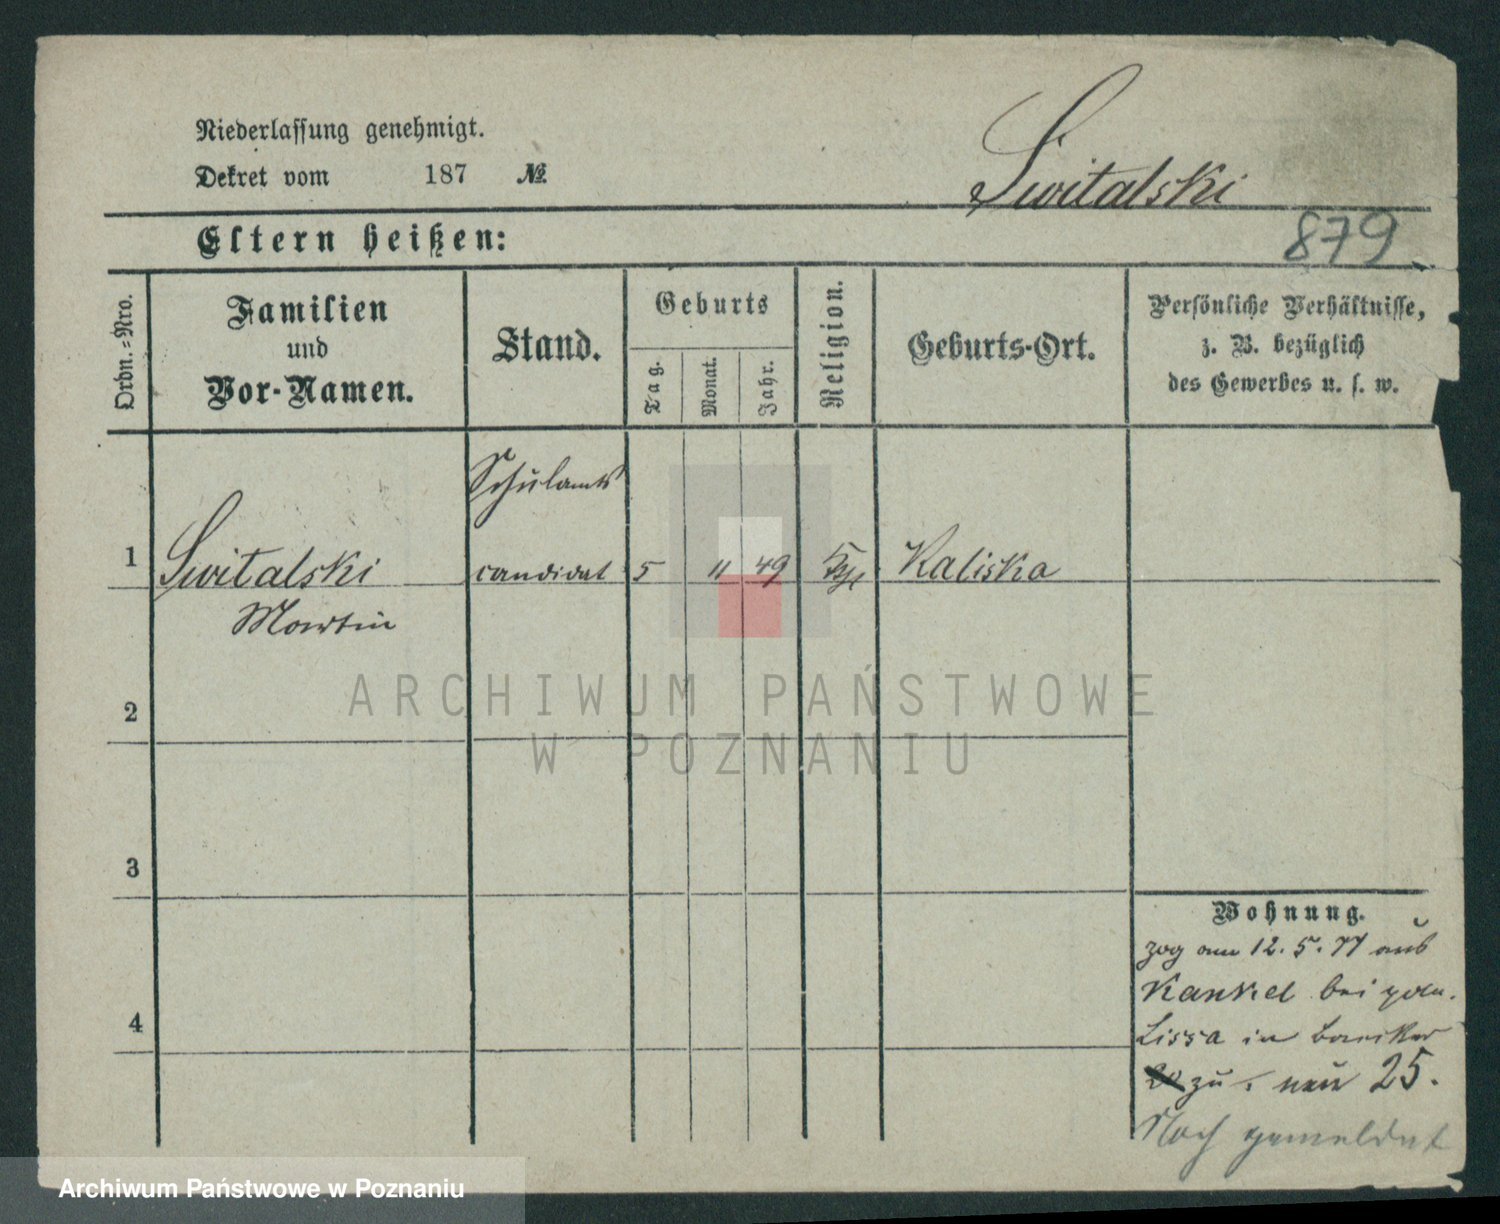 Niederlassung genehmigt.
Dekret vom 187 №
Switalski
Eltern heißen:
879
Ordn.-Nro.
Familien
und
Vor-Namen.
Stand.
Geburts
Tag.
Monat.
Jahr.
Religion.
Geburts-Ort.
Persönliche Verhältnisse,
z. B. bezüglich
des Gewerbes u. s. w.
Schulamts
1 Switalski candidat 5 11 49 Kaliska
Martin
2
3
4
Wohnung.
zog am 12. 5. 77 aus
Kankel bei poln.
Lissa in
zu neu 25.
Noch gemeldet
ARCHIWUM PAŃSTWOWE
W POZNANIU
Archiwum Państwowe w Poznaniu